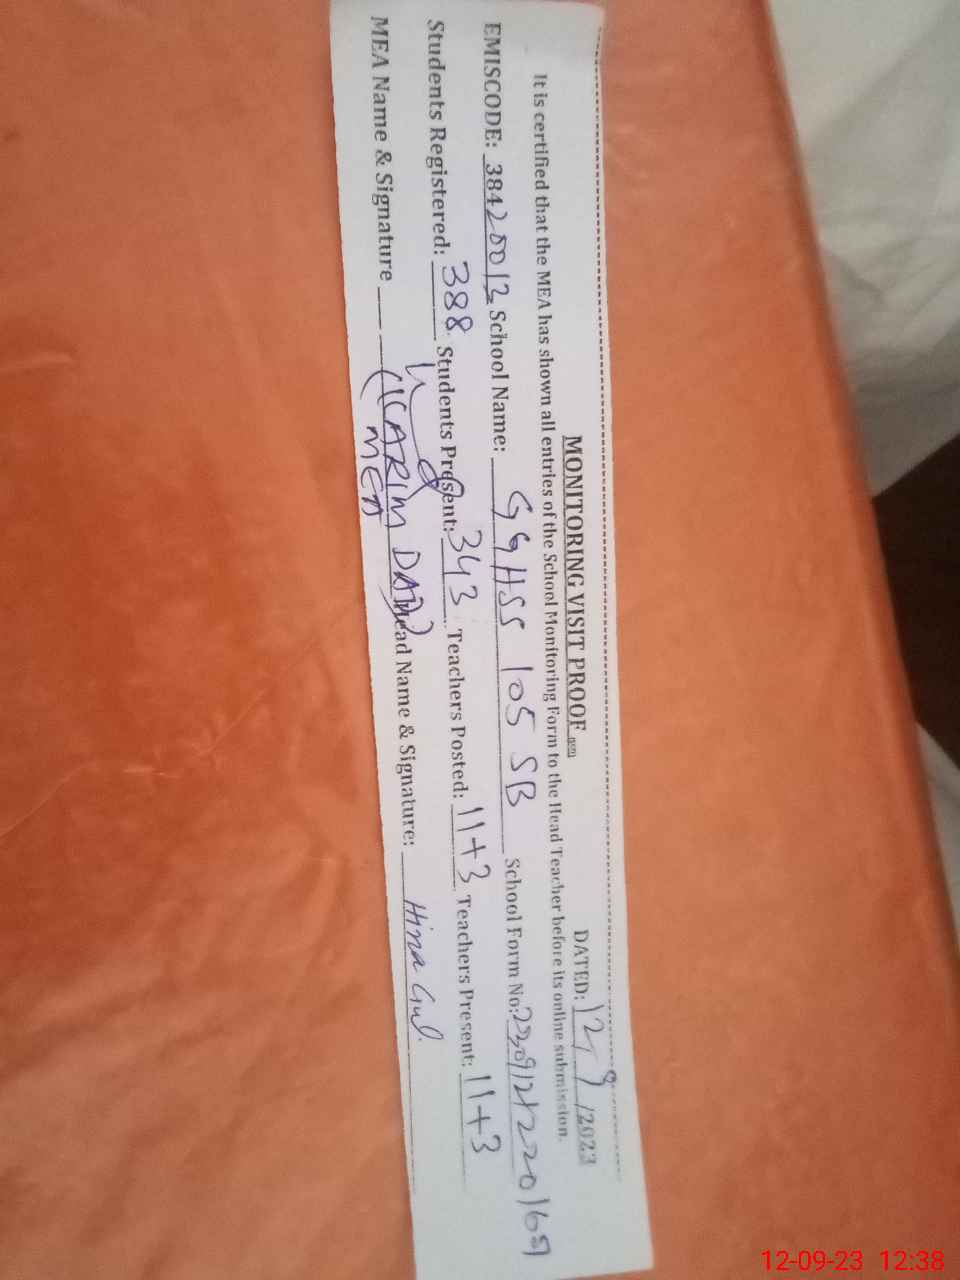 MONITORING VISIT PROOF
DATED: 12/9/2023
It is certified that the MEA has shown all entries of the School Monitoring Form to the Head Teacher before its online submission.
EMISCODE: 38420012 School Name: GGHSS 105 SB School Form No:
Students Registered: 388 Students Present: 343 Teachers Posted: 11+3 Teachers Present: 11+3
MEA Name & Signature (KARIM DAD) Head Name & Signature: Hina Gul.
MEA
12-09-23 12:38